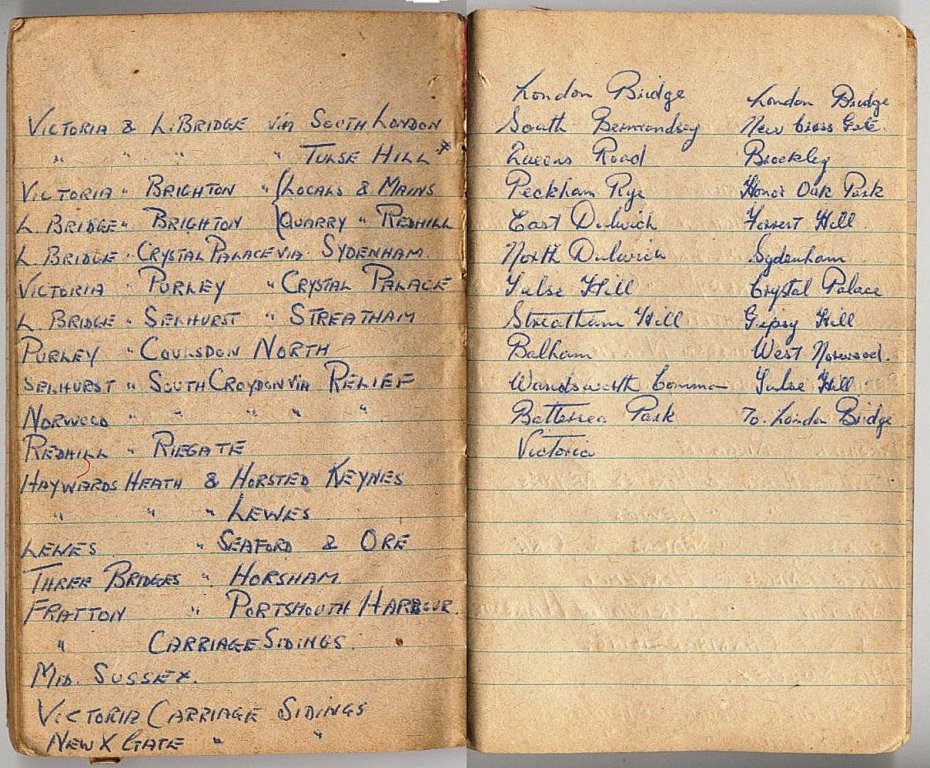 VICTORIA & L. BRIDGE via SOUTH LONDON
" " " " TULSE HILL *
VICTORIA " BRIGHTON " { LOCALS & MAINS
L BRIDGE " BRIGHTON { QUARRY " REDHILL
L. BRIDGE " CRYSTAL PALACE VIA SYDENHAM
VICTORIA " PURLEY " CRYSTAL PALACE
L BRIDGE " SELHURST " STREATHAM
PURLEY " COULSDON NORTH
SELHURST " SOUTH CROYDON VIA RELIEF
NORWOOD " " " " "
REDHILL " RIEGATE
HAYWARDS HEATH & HORSTED KEYNES
" " " LEWES
LEWES " SEAFORD & ORE
THREE BRIDGES " HORSHAM
FRATTON " PORTSMOUTH HARBOUR.
" CARRIAGE SIDINGS
MID. SUSSEX.
VICTORIA CARRIAGE SIDINGS
NEW X GATE " "
London Bridge
South Bermondsey
Queens Road
Peckham Rye
East Dulwich
North Dulwich
Tulse Hill
Streatham Hill
Balham
Wandsworth Common
Battersea Park
Victoria
London Bridge
New Cross Gate.
Brockley
Honor Oak Park
Forrest Hill.
Sydenham
Crystal Palace
Gipsy Hill
West Norwood.
Tulse Hill.
To. London Bridge